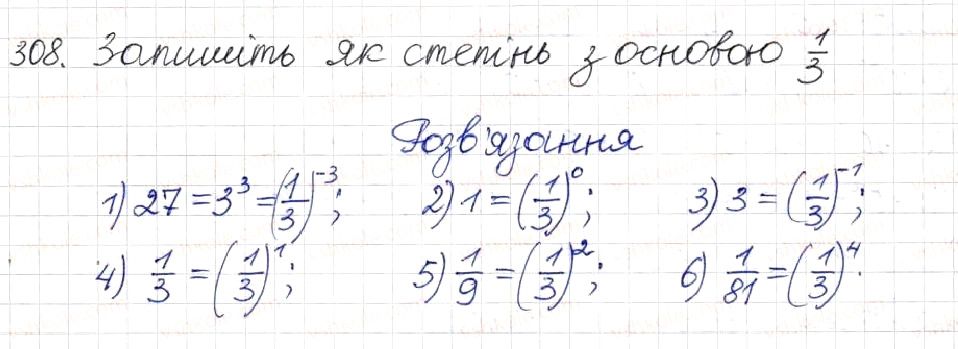 308. Запишіть як степінь з основою 1/3
Розв'язання
1) 27 = 3³ = (1/3)⁻³; 2) 1 = (1/3)⁰; 3) 3 = (1/3)⁻¹;
4) 1/3 = (1/3)¹; 5) 1/9 = (1/3)²; 6) 1/81 = (1/3)⁴.